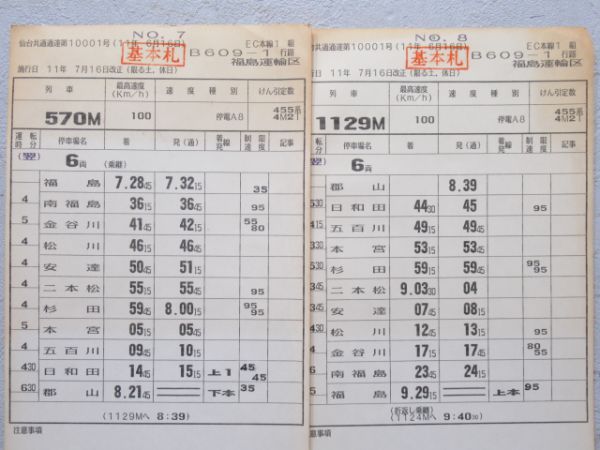 NO. 7
仙台共通達第10001号(11年 6月16日)
EC本線1 組
基本札
B609-1 行路
施行日 11年 7月16日改正(限る土,休日)
福島運輸区
列車 最高速度(Km/h) 速度種別 けん引定数
570M 100 停電A8 455系 4M2T
運転時分 停車場名 着 発(通) 着線発 制限速度 記事
(翌) 6両 (乗継)
福島 7.28 45 7.32 15 35
4 南福島 36 15 36 45 95
5 金谷川 41 45 42 15 55 80
4 松川 46 15 46 45
4 安達 50 45 51 15
4 二本松 55 15 55 45 95
4 杉田 59 45 8.00 15 95 95
5 本宮 05 15 05 45
4 五百川 09 45 10 15
4 30 日和田 14 45 15 15 上1 45 45
6 30 郡山 8.21 45 下本 35
(1129Mへ 8:39)
注意事項
NO. 8
共通達第10001号(11年 6月16日)
EC本線1 組
基本札
B609-1 行路
日 11年 7月16日改正(限る土,休日)
福島運輸区
列車 最高速度(Km/h) 速度種別 けん引定数
1129M 100 停電A8 455系 4M2T
停車場名 着 発(通) 着線発 制限速度 記事
(翌) 6両
郡山 8.39
5 30 日和田 44 30 45 95
4 15 五百川 49 15 49 45
本宮 53 15 53 45
5 30 杉田 59 15 59 45 95 95
3 45 二本松 9.03 30 04
3 45 安達 07 45 08 15
4 30 松川 12 45 13 15 95
4 金谷川 17 15 17 45 80 55
6 南福島 23 45 24 15
5 福島 9.29 15 上本 95
(折返し乗継)
(1124Mへ 9:40 00)
注意事項